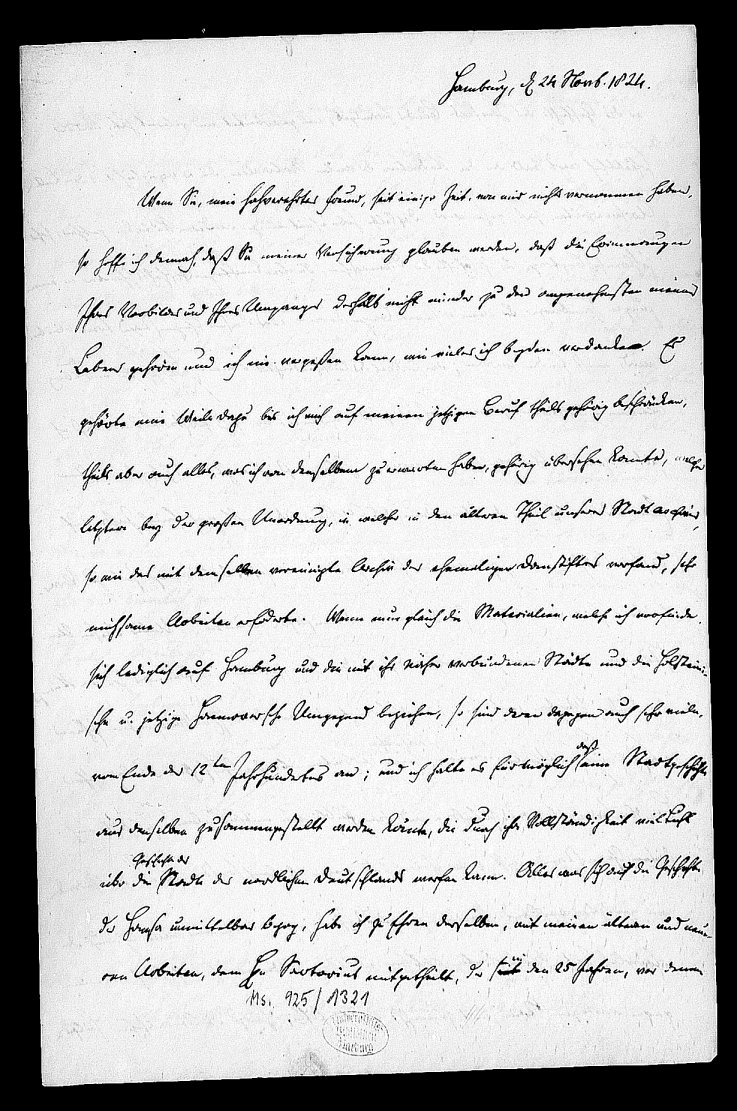 Hamburg, d 24 Novb. 1824.
Wenn Sie, mein hochverehrter Freund, seit einiger Zeit, von mir nichts vernommen haben,
so hoffe ich dennoch, daß Sie meiner Versicherung glauben werden, daß die Erinnerungen
Ihres Vorbildes und Ihres Umganges deshalb nicht minder zu den angenehmsten meines
Lebens gehören und ich nie vergeßen kann, wie vieles ich beyden verdanke. Es
gehörte eine Weile dazu bis ich mich auf meinen jetzigen Beruf theils gehörig beschränken,
theils aber auch alles, was ich von demselben zu erwarten habe, gehörig übersehen konnte, welches
letztere bey der großen Unordnung, in welcher ich den ältern Theil unseres Stadt Archives,
so wie das mit demselben vereinigte Archiv des ehemaligen Domstiftes vorfand, sehr
mühsame Arbeiten erforderte. Wenn nun gleich die Materialien, welche ich vorfinde,
sich lediglich auf Hamburg und die mit ihr näher verbundenen Städte und die Holsteini-
sche u. jetzige Hannoversche Umgegend beziehen, so sind deren dagegen auch sehr viele,
vom Ende des 12ten Jahrhunderts an; und ich halte es für möglich daß eine Stadtgeschichte
aus denselben zusammengestellt werden könnte, die durch ihre Vollständigkeit viel Licht
über die Geschichte der Städte des nördlichen Deutschlands werfen kann. Alles was sich auf die Geschichte
der Hansa unmittelbar bezog, habe ich zu Ehren derselben, mit meinen ältern und neue-
ren Arbeiten, dem Hn Sartorius mitgetheilt, der seit den 25 Jahren, vor denen
Ms. 925/1321